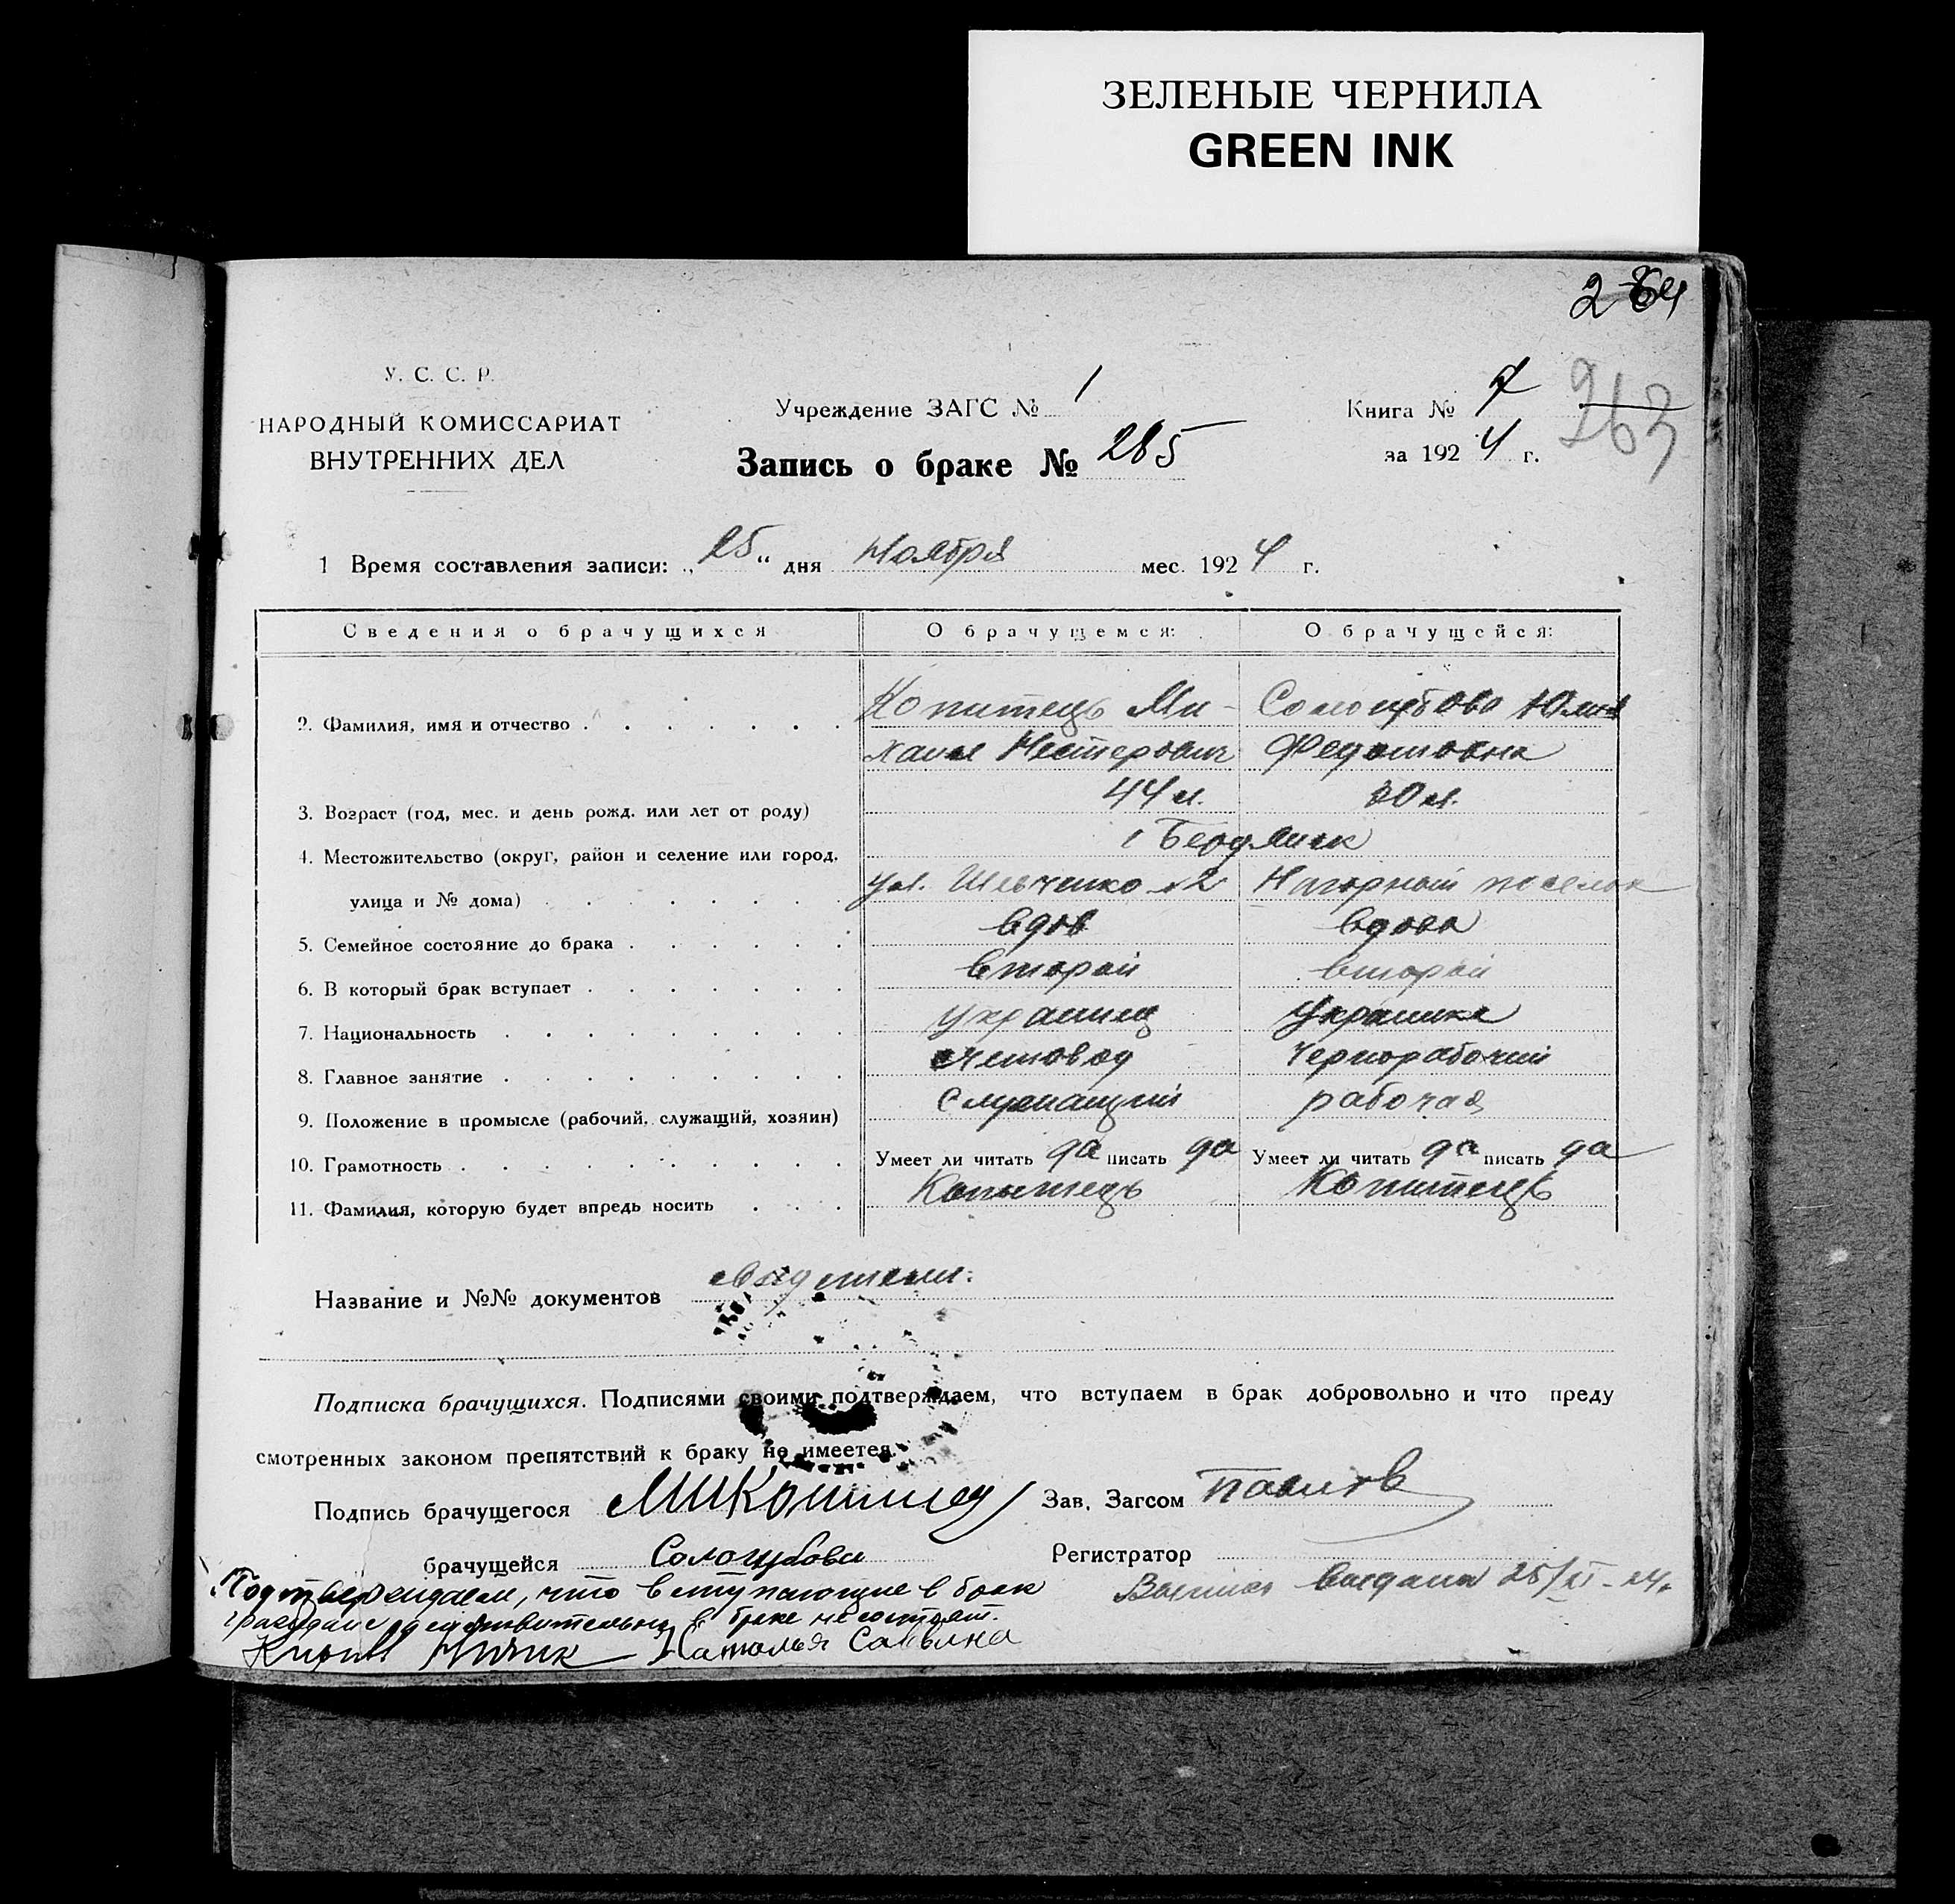 ЗЕЛЕНЫЕ ЧЕРНИЛА
GREEN INK
У. С. С. Р.
НАРОДНЫЙ КОМИССАРИАТ
ВНУТРЕННИХ ДЕЛ
Учреждение ЗАГС № 1
Запись о браке № 285
Книга № 7
за 1924 г.
263
1 Время составления записи: „25“ дня Ноября мес. 1924 г.
Сведения о брачущихся О брачущемся: О брачущейся:
2. Фамилия, имя и отчество Копитець Ми- Сологубова Юлия
хаил Нестерович Федотовна
3. Возраст (год, мес. и день рожд. или лет от роду) 44 л. 30 л.
4. Местожительство (округ, район и селение или город, г Бердянск
улица и № дома) ул. Шевченко №2 Нагорный поселок
5. Семейное состояние до брака вдов вдова
6. В который брак вступает второй второй
7. Национальность украинец Украинка
8. Главное занятие счетовод Чернорабочий
9. Положение в промысле (рабочий, служащий, хозяин) Служащий рабочая
10. Грамотность Умеет ли читать да писать да Умеет ли читать да писать да
11. Фамилия, которую будет впредь носить Копитець Копитець
Название и №№ документов
Подписка брачущихся. Подписями своими подтверждаем, что вступаем в брак добровольно и что преду
смотренных законом препятствий к браку не имеется.
Подпись брачущегося МиКопитец Зав. Загсом Павлов
брачущейся Сологубова Регистратор
Подтверждаем, что вступающие в брак Выпись выдана 25/XI-24г
граждане действительно в браке не состоят.
Наталья Саввина